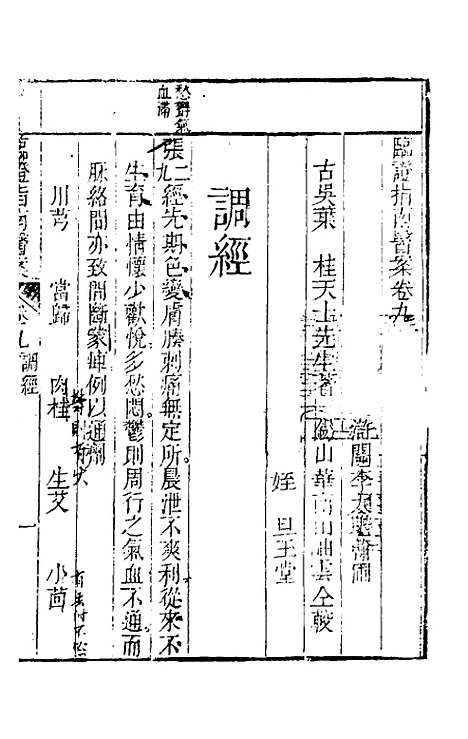 臨證指南醫案卷九
滸關李大瞻瀚圃
古吳葉桂天士先生著 錫山華南田岫雲仝較
姪旦王堂
調經
愁鬱氣血滯
張二九 經先期色變膚腠刺痛無定所晨泄不爽利從來不
生育由情懷少歡悅多愁悶鬱則周行之氣血不通而
脉絡間亦致間斷蒙痺例以通劑
川芎 當歸 肉桂 生艾 小茴
臨證指南醫案 卷九調經 一